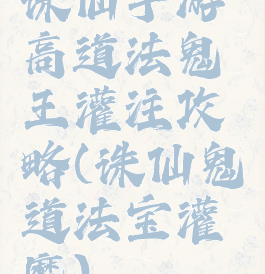 诛仙手游
高道法鬼
王灌注攻
略(诛仙鬼
道法宝灌
魔)